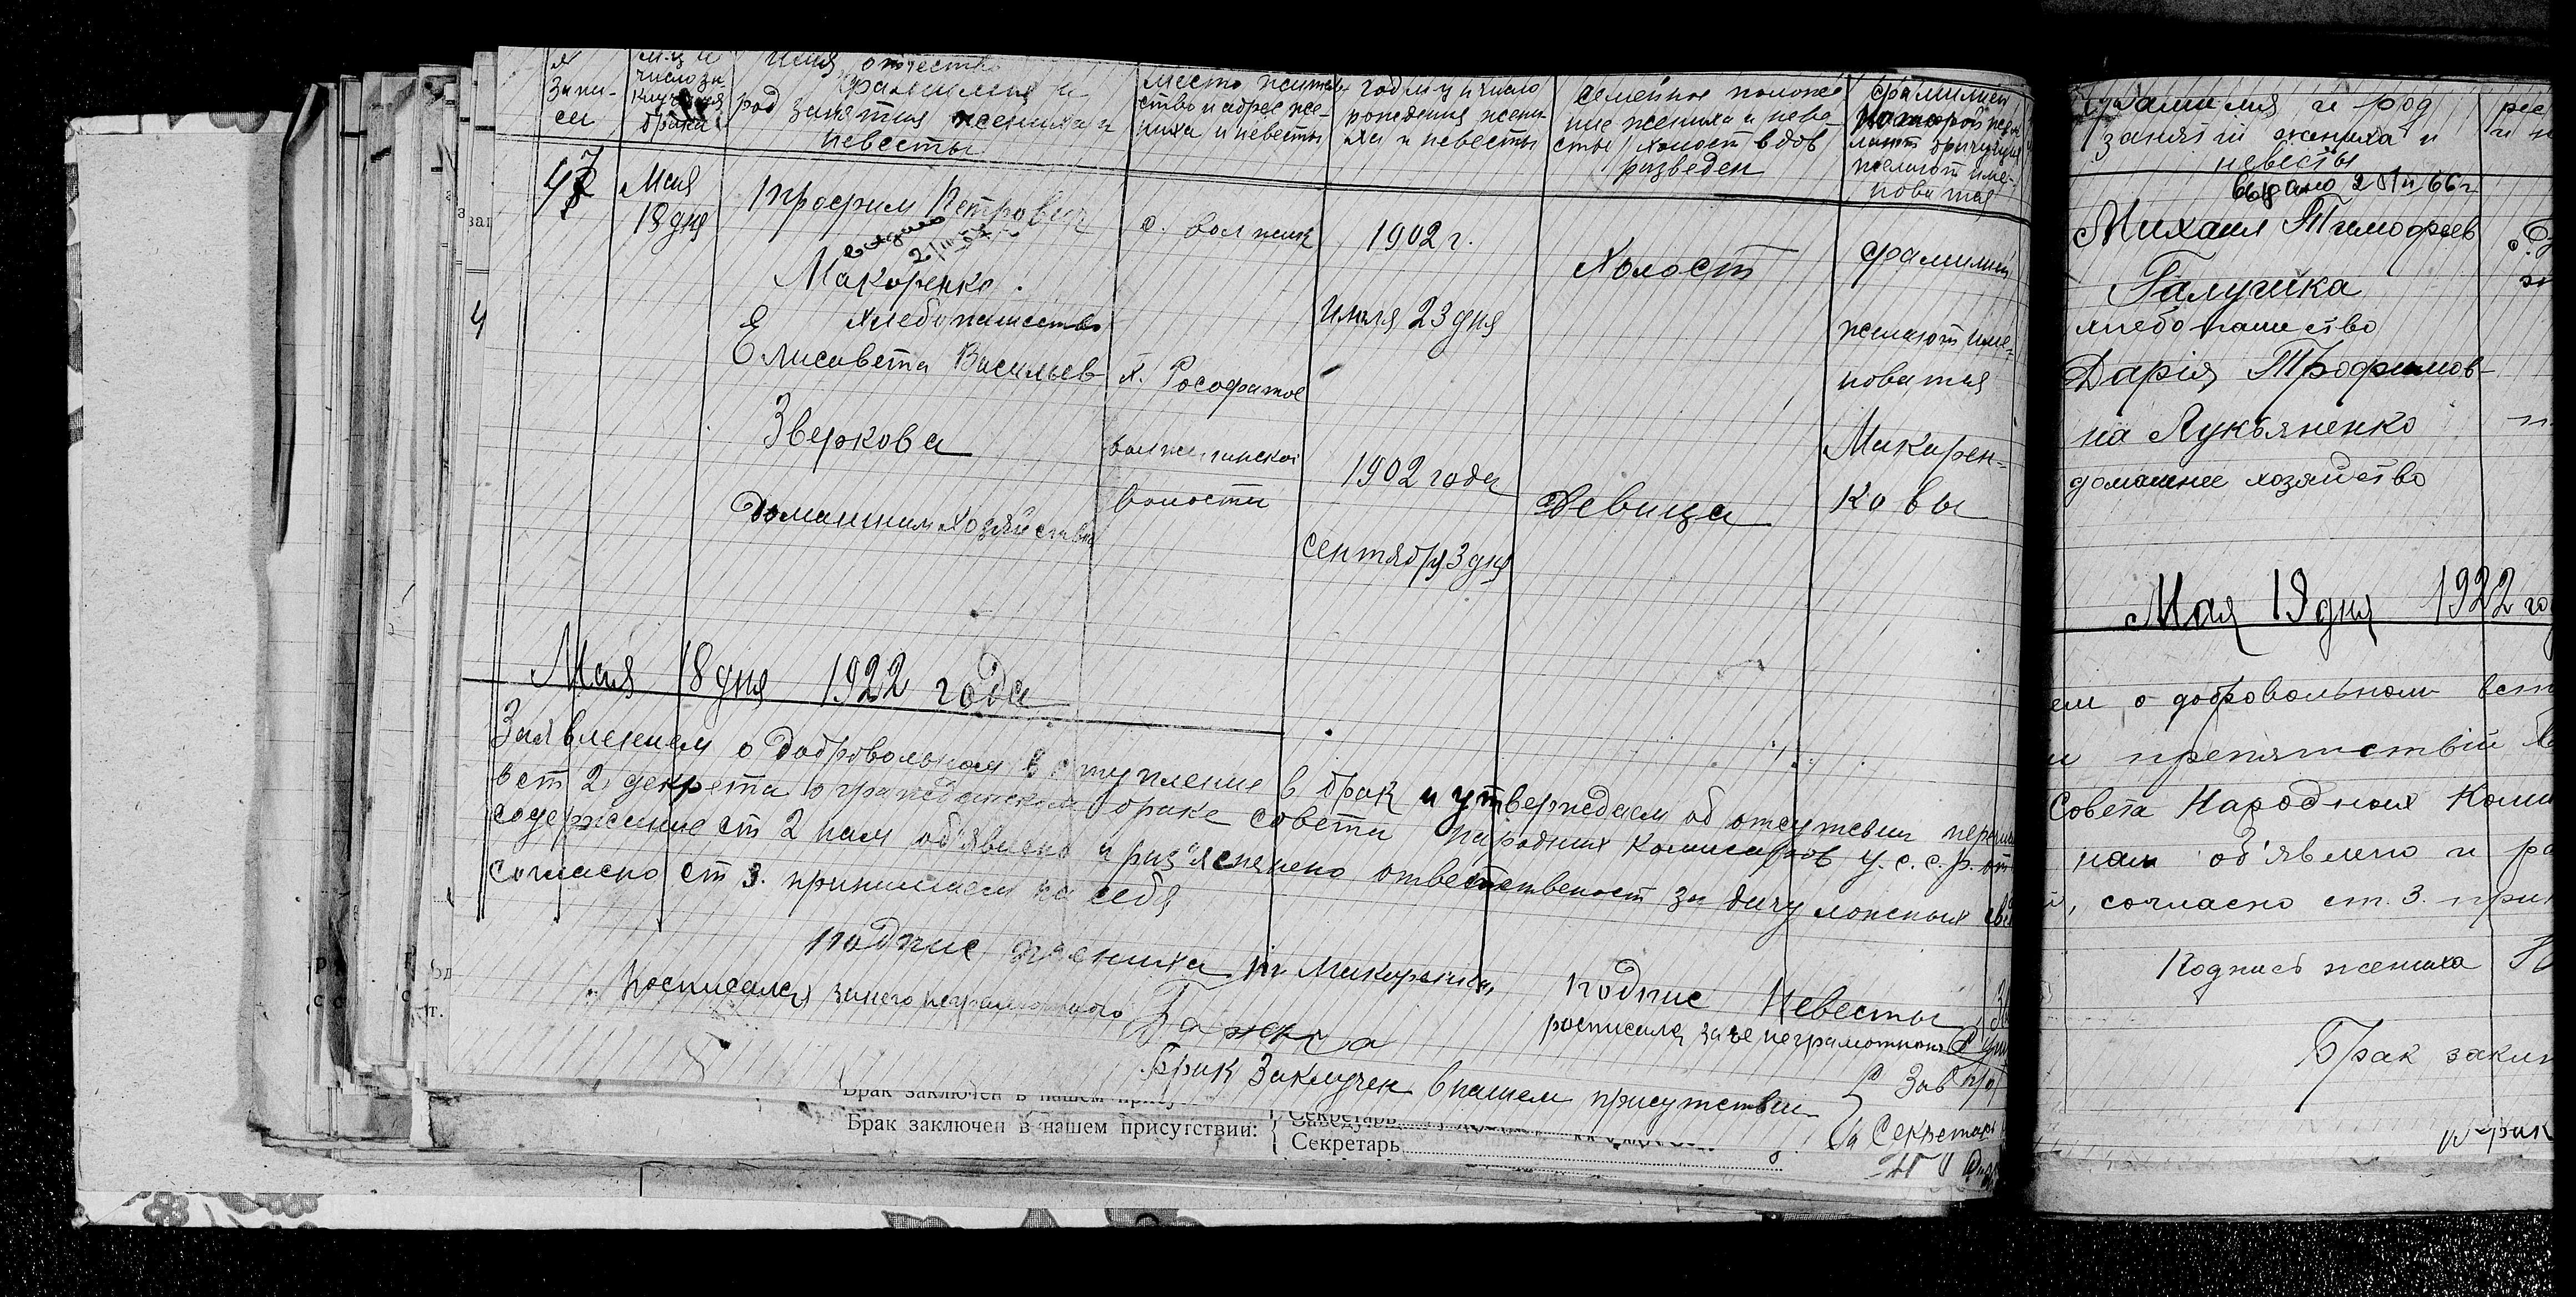 № Запи- си
м-ц и число за- ключения брака
имя, отчество фамилия и род занятия жениха и невесты
место житель ство и адрес же- ниха и невесты
год м-ц и число рождения жени ха и невесты
семейное положе ние жениха и неве- сты холост вдов разведен
фамилии которой желают именоватся
47
Мая
18 дня
Трофим Петрович
выдано
Макоренко.
хлебопашество
Елисавета Васильев
Зверкова
Домашним хозяйством
с. Волжик
х. Рософатое
волости
1902 г.
июля 23 дня
1902 года
сентября 3 дня
Холост
Девица
фамилии
желают име-
новатся
Макарен-
ковы
4
Мая 18 дня 1922 года
Заявлением о добровольном вступление в брак и утверждаем об отсутсвии
в ст 2 декрета о гражданском браке совета народних комисаров У.С.С.Р. от
содержание ст 2 нам об'явлено и раз'яснено ответственост за дачу ложных
согласно ст 3. принимаем на себя
подпис жениха Макаренко
Росписался за него неграмотного
подпис Невесты
росписался за её неграмотную
Брак Заключен в нашем присутствии
Зав
и Секретарь
Брак заключен в нашем присутствии: Секретарь
Фамилия и род
занятий жениха и
невесты
выдано 2 VII 66 г.
Михаил Тимофеев
Галушка
хлебопашество
Дарія Трофимов-
на Лукьяненко
домашнее хозяйство
Мая 19 дня 1922
ем о добровольном
и препятствій
Совета Народных
нам об'явлено и
согласно ст. 3.
Подпись жениха
Брак